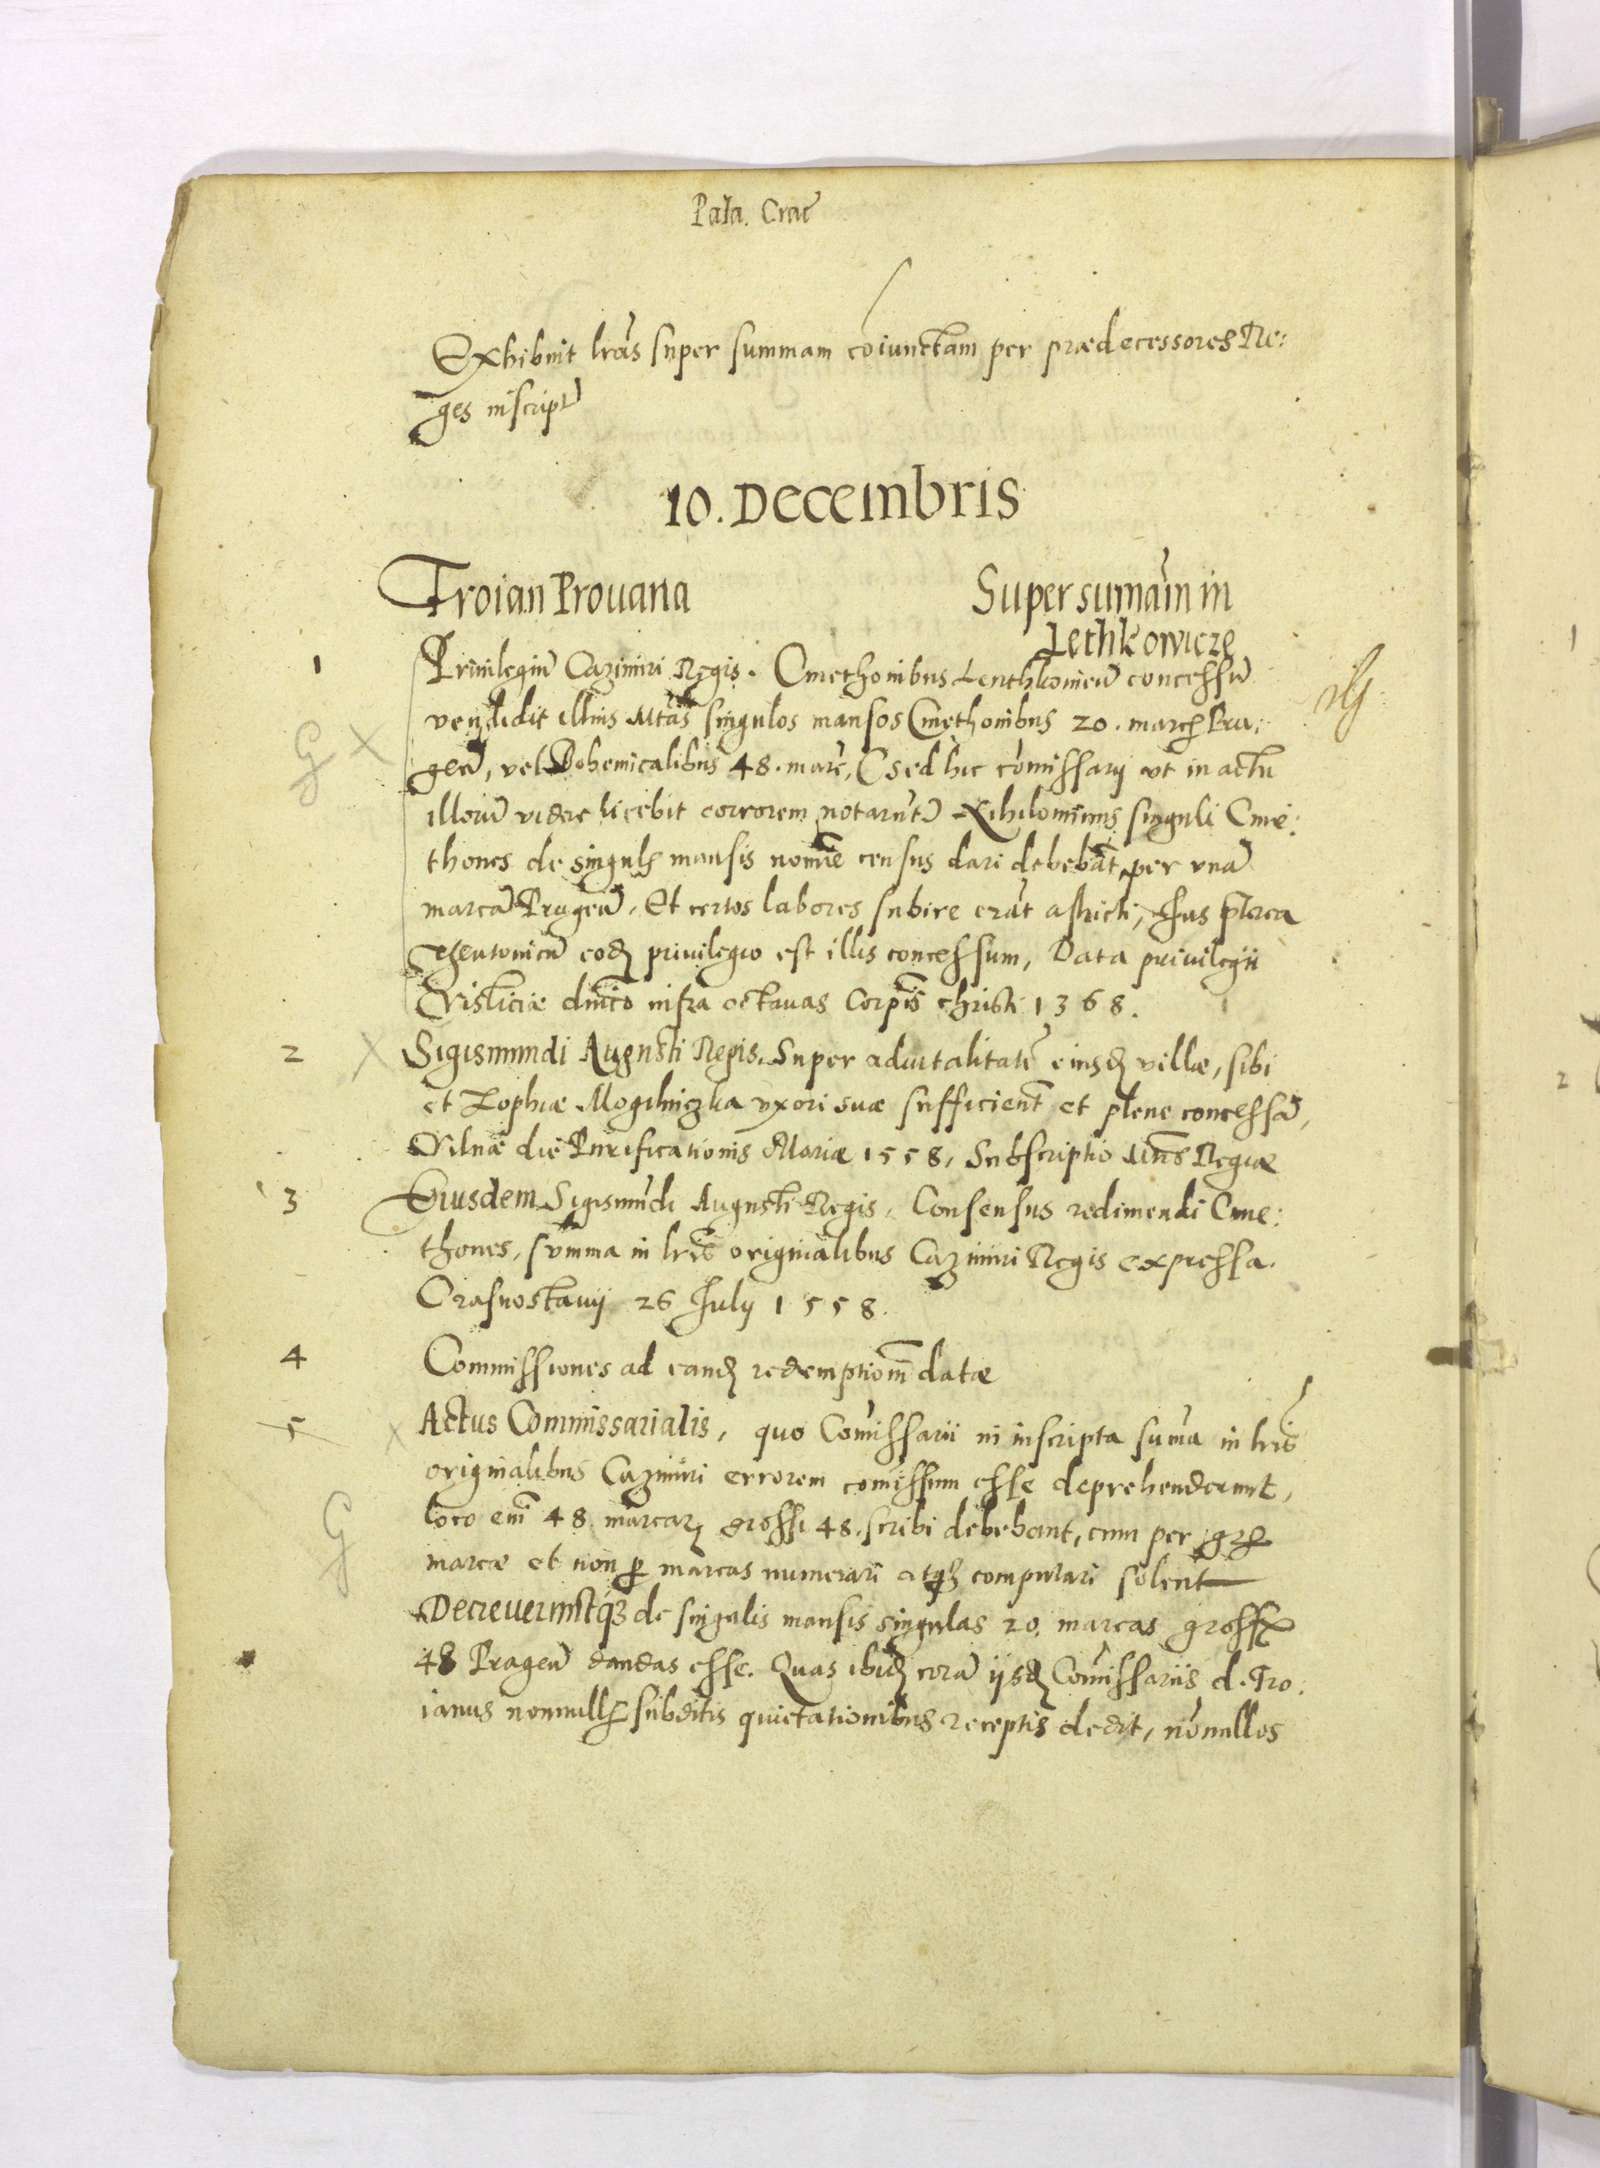 Pala. Crac̃
Exhibuit lrãs super summam coĩunctam per prædecessores Re:
ges inscript̃
10. Decembris
Troian Prouana
Super sum̃am in
Lethkowicze
1 Priuilegiũ Cazimiri Regis. Cmethonibus Lenthkouieñ concessũ
vendidit illius Mtãs singulos mansos Cmethonibus 20. marcꝭ Pra:
geñ, vel Bohemicalibus 48. marc̃, (sed hic com̃issarij vt in actu
illorũ videre licebit errorem notarũt) Nihilominus singuli Cme:
thones de singulꝭ mansis nomĩe census dari debebãt per vnã
marcã Prageñ. Et certos labores subire erãt astricti, Ius p̃terea
Theutonicũ eodꝫ priuilegio est illis concessum, Data priuilegii
Visliciæ dm̃co infra octauas Corpĩs christi 1368.
2 Sigismundi Augusti Regis. Super aduitalitatẽ eiusdꝫ villæ, sibi
et Zophiæ Mogilniczka vxori suæ sufficient̃ et plene concessã,
Vilnæ die Purificationis Mariæ 1558, Subscriptio Mtĩs Regiæ
3 Eiusdem Sigismũdi Augusti Regis. Consensus redimendi Cme:
thones, summa in lrĩs originalibus Cazimiri Regis expressa.
Crasnostauij 26 Iulij 1558.
4 Commissiones ad eandꝫ redemptionẽ datæ
5 Actus Commissarialis, quo Com̃issarii in inscripta sum̃a in lrĩs
originalibus Cazimiri errorem com̃issum esse deprehenderunt,
loco enĩ 48. marcarꝫ grossi 48. scribi debebant, cum per grꝭ
marcæ et non ꝑ marcas numerari atqꝫ computari solent
Decreueruntqꝫ de singulis mansis singulas 20. marcas grossꝭ
48 Prageñ dandas esse. Quas ibidꝫ corã ijsdꝫ Com̃issariis d. Tro:
ianus nonnullꝭ subditis quietationibus receptis dedit, nõnullos
G
G